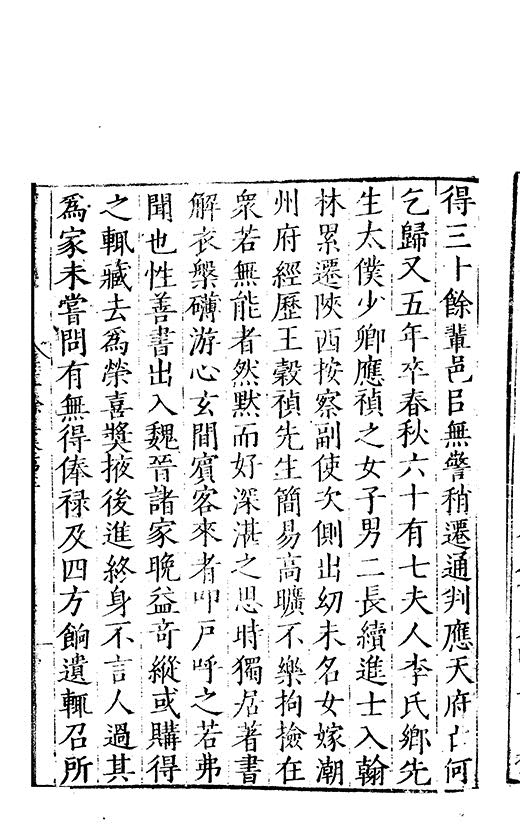 得三十餘輩邑邑無警稍遷通判應天府亡何
乞歸又五年卒春秋六十有七夫人李氏鄉先
生太僕少卿應禎之女子男二長續進士入翰
林累遷陝西按察副使次側出幼未名女嫁潮
州府經歷王穀禎先生簡易高曠不樂拘撿在
衆若無能者然默而好深湛之思時獨居著書
解衣槃礴游心玄間賓客來者叩戶呼之若弗
聞也性善書出入魏晉諸家晚益奇縱或購得
之輒藏去爲榮喜奬掖後進終身不言人過其
爲家未嘗問有無得俸禄及四方餉遺輒召所